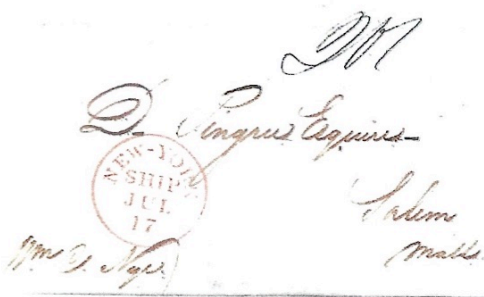 D. Pingree Esquire
NEW-YORK
SHIP
JUL
17
Salem
Mass.
Wm G. Nye